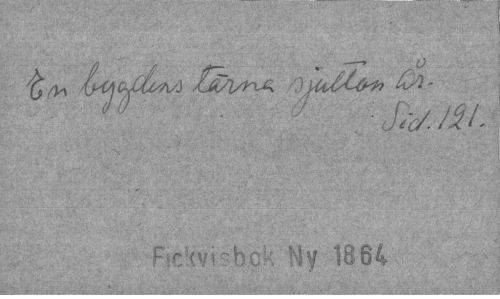 En bygdens tärna sjutton år.
Sid. 121.
Fickvisbok Ny 1864